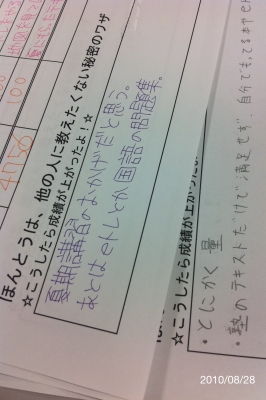 ほんとうは、他の人に教えたくない秘密のワザ
☆こうしたら成績が上がったよ!☆
夏期講習のおかげだと思う。
あとはeトレとか国語の問題集。
4050
100
☆こうしたら成績が上がった
・とにかく量
・塾のテキストだけで満足せず、自分でも
2010/08/28